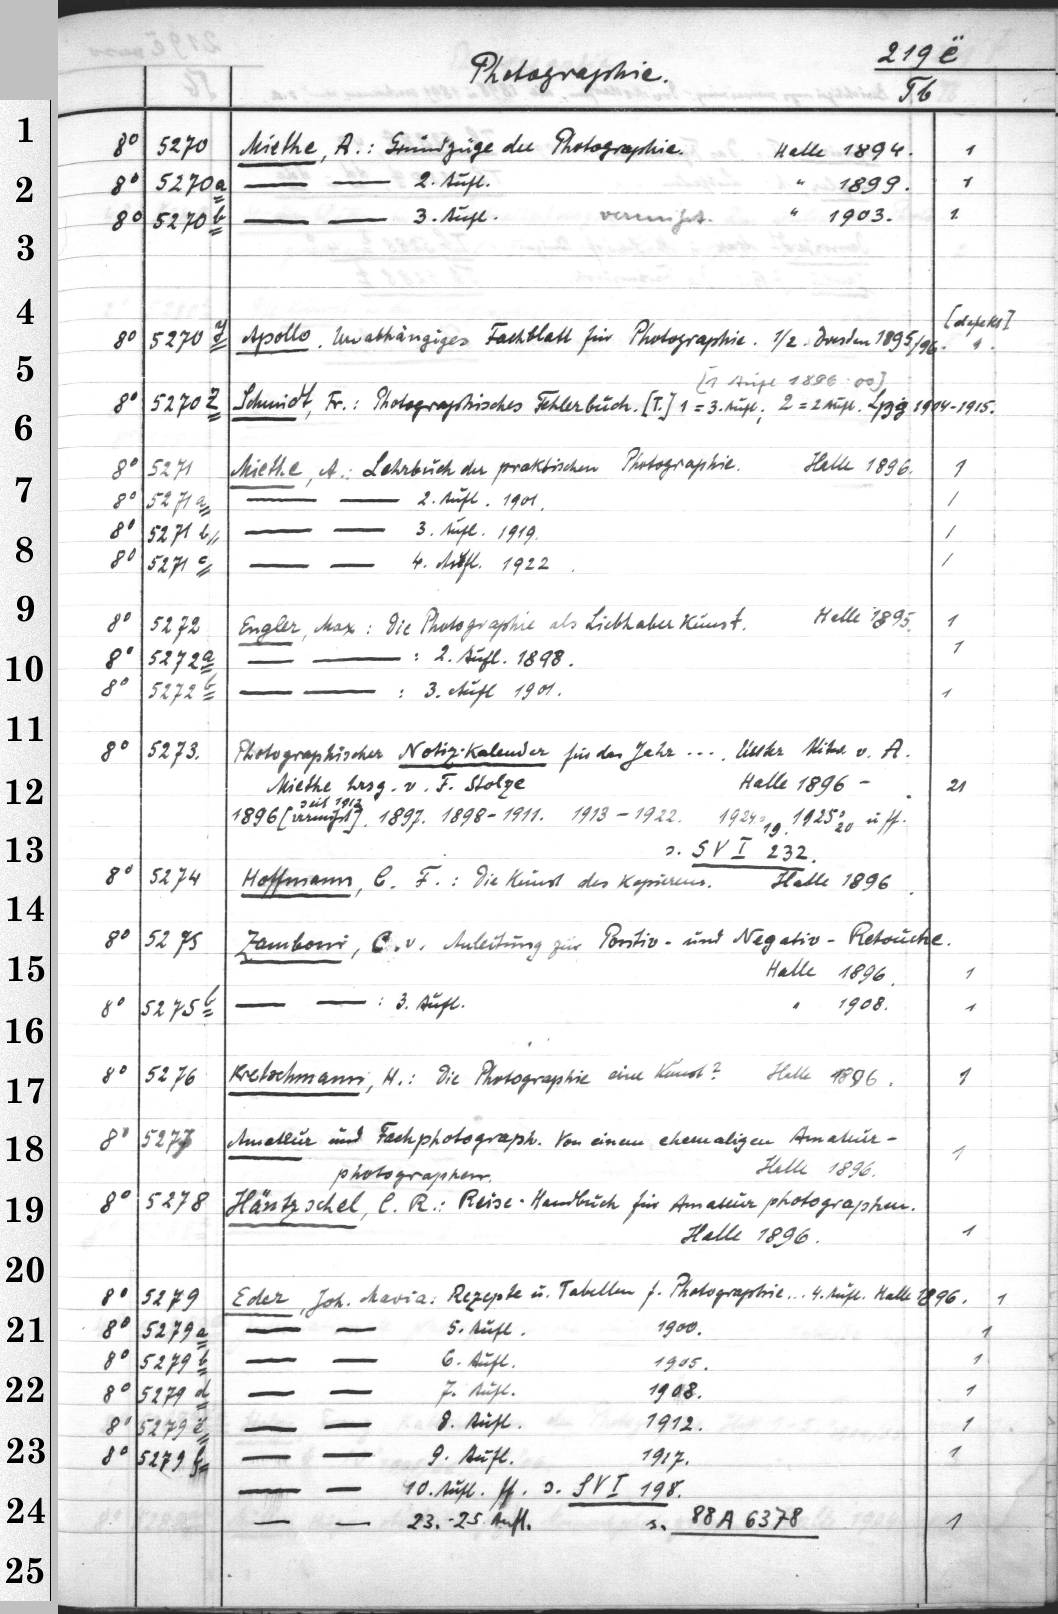 219 ë
Photographie.
Tb
1
8° 5270 Miethe, A.: Grundzüge der Photographie. Halle 1894. 1
2
8° 5270a — — 2. Aufl. " 1899. 1
8° 5270b — — 3. Aufl. vermißt. " 1903. 1
3
4
[defekt]
8° 5270 y Apollo. Unabhängiges Fachblatt für Photographie. 1/2. Dresden 1895/96. 1.
5
[1 Aufl 1896 : 00]
8° 5270 z Schmidt, Fr.: Photographisches Fehlerbuch. [T.] 1 = 3. Aufl., 2 = 2 Aufl. Lpzg 1904-1915.
6
8° 5271 Miethe, A.: Lehrbuch der praktischen Photographie. Halle 1896. 1
7
8° 5271 a — — 2. Aufl. 1901. 1
8° 5271 b — — 3. Aufl. 1919. 1
8
8° 5271 c — — 4. Aufl. 1922. 1
9
8° 5272 Engler, Max: Die Photographie als Liebhaber Kunst. Halle 1895. 1
10
8° 5272a — — : 2. Aufl. 1898. 1
8° 5272 b — — : 3. Aufl 1901. 1
11
8° 5273. Photographischer Notiz-Kalender für das Jahr .... Unter Mitw. v. A.
12
Miethe hrsg. v. F. Stolze Halle 1896 - . 21
seit 1912
1896 [vermißt]. 1897. 1898-1911. 1913-1922. 1924 = 19. 1925 = 20 u ff.
13
s. SV I 232.
8° 5274 Hoffmann, C. F.: Die Kunst des Kopierens. Halle 1896.
14
8° 5275 Zamboni, C. v. Anleitung zur Positiv- und Negativ-Retouche.
15
Halle 1896. 1
8° 5275 b — — : 3. Aufl. " 1908. 1
16
8° 5276 Kretschmann, H.: Die Photographie eine Kunst? Halle 1896. 1
17
8° 5277 Amateur und Fachphotograph. Von einem ehemaligen Amateur-
18
photographen. Halle 1896. 1
8° 5278 Häntzschel, C. R.: Reise-Handbuch für Amateur photographen.
19
Halle 1896. 1
20
8° 5279 Eder, Jos. Maria: Rezepte u. Tabellen f. Photographie... 4. Aufl. Halle 1896. 1
21
8° 5279a — — 5. Aufl. 1900. 1
8° 5279 b — — 6. Aufl. 1905. 1
22
8° 5279 d — — 7. Aufl. 1908. 1
8° 5279 — — 8. Aufl. 1912. 1
23
8° 5279 — — 9. Aufl. 1917. 1
— — 10. Aufl. ff. s. SV I 198.
24
— — 23.-25. Aufl. s. 88 A 6378 1
25